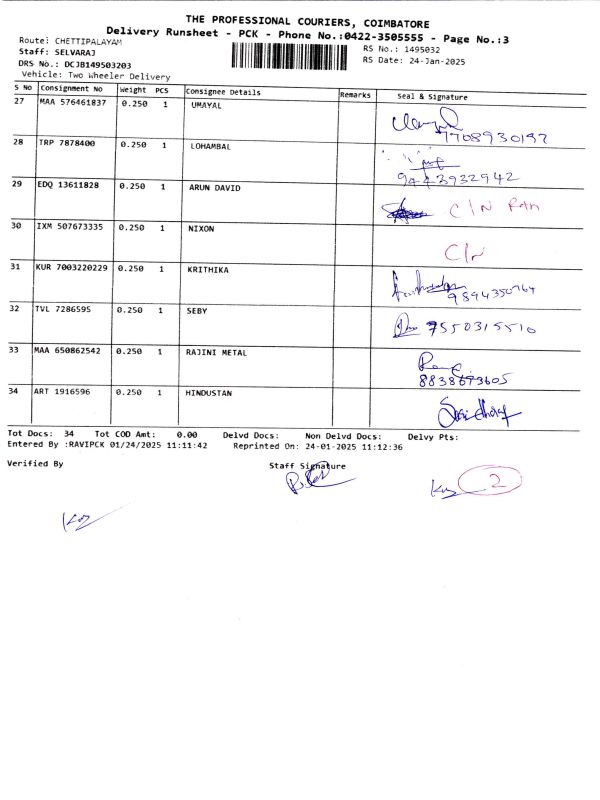 THE PROFESSIONAL COURIERS, COIMBATORE
Delivery Runsheet - PCK - Phone No.:0422-3505555 - Page No.:3
Route: CHETTIPALAYAM RS No.: 1495032
Staff: SELVARAJ RS Date: 24-Jan-2025
DRS No.: DCJB149503203
Vehicle: Two Wheeler Delivery
S No Consignment No Weight PCS Consignee Details Remarks Seal & Signature
27 MAA 576461837 0.250 1 UMAYAL
7708930197
28 TRP 7878400 0.250 1 LOHAMBAL
9443932942
29 EDQ 13611828 0.250 1 ARUN DAVID C/N
30 IXM 507673335 0.250 1 NIXON
C/N
31 KUR 7003220229 0.250 1 KRITHIKA
9894350764
32 TVL 7286595 0.250 1 SEBY
7550315510
33 MAA 650862542 0.250 1 RAJINI METAL
34 ART 1916596 0.250 1 HINDUSTAN
Tot Docs: 34 Tot COD Amt: 0.00 Delvd Docs: Non Delvd Docs: Delvy Pts:
Entered By :RAVIPCK 01/24/2025 11:11:42 Reprinted On: 24-01-2025 11:12:36
Verified By Staff Signature
2